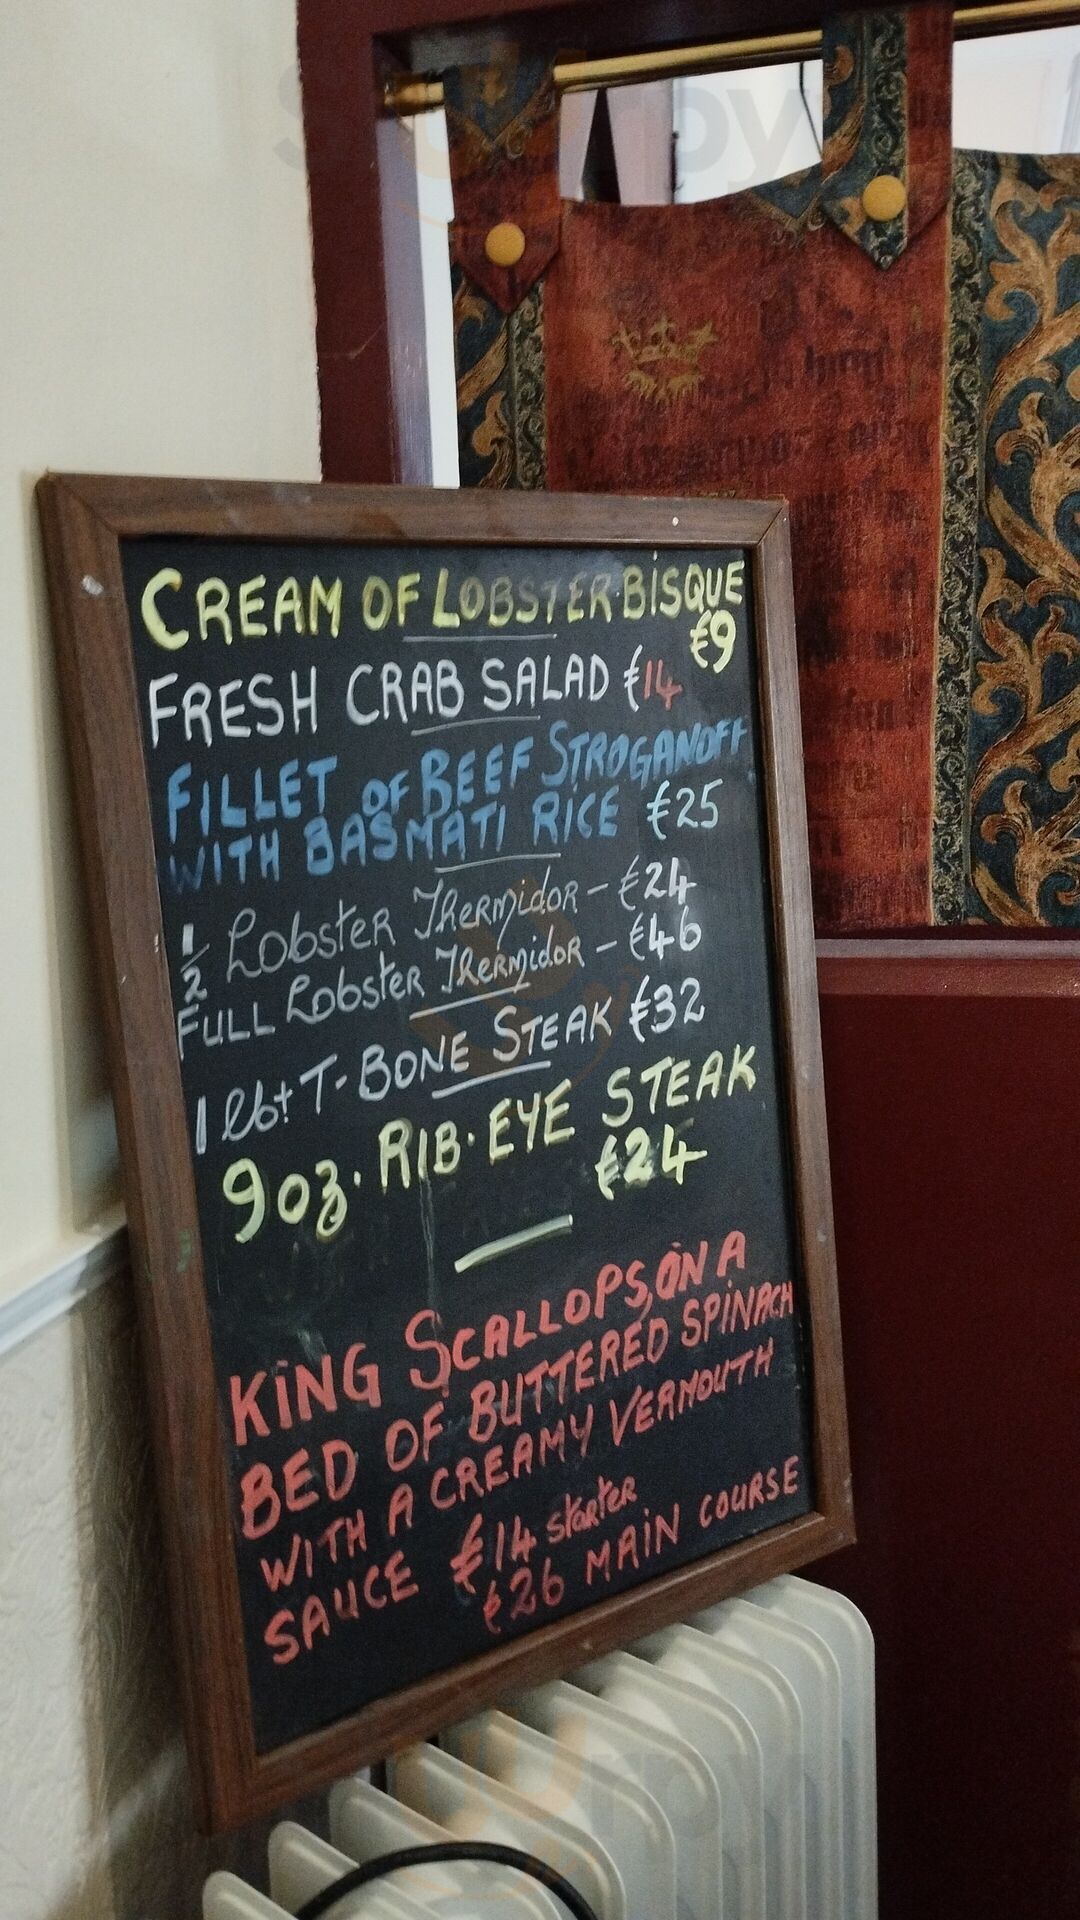 CREAM OF LOBSTER BISQUE
€9
FRESH CRAB SALAD €14
FILLET OF BEEF STROGANOFF
WITH BASMATI RICE €25
1/2 Lobster Thermidor - €24
FULL Lobster Thermidor - €46
1 lbt T-BONE STEAK €32
9oz. RIB.EYE STEAK
€24
KING SCALLOPS, ON A
BED OF BUTTERED SPINACH
WITH A CREAMY VERMOUTH
SAUCE €14 starter
€26 MAIN COURSE